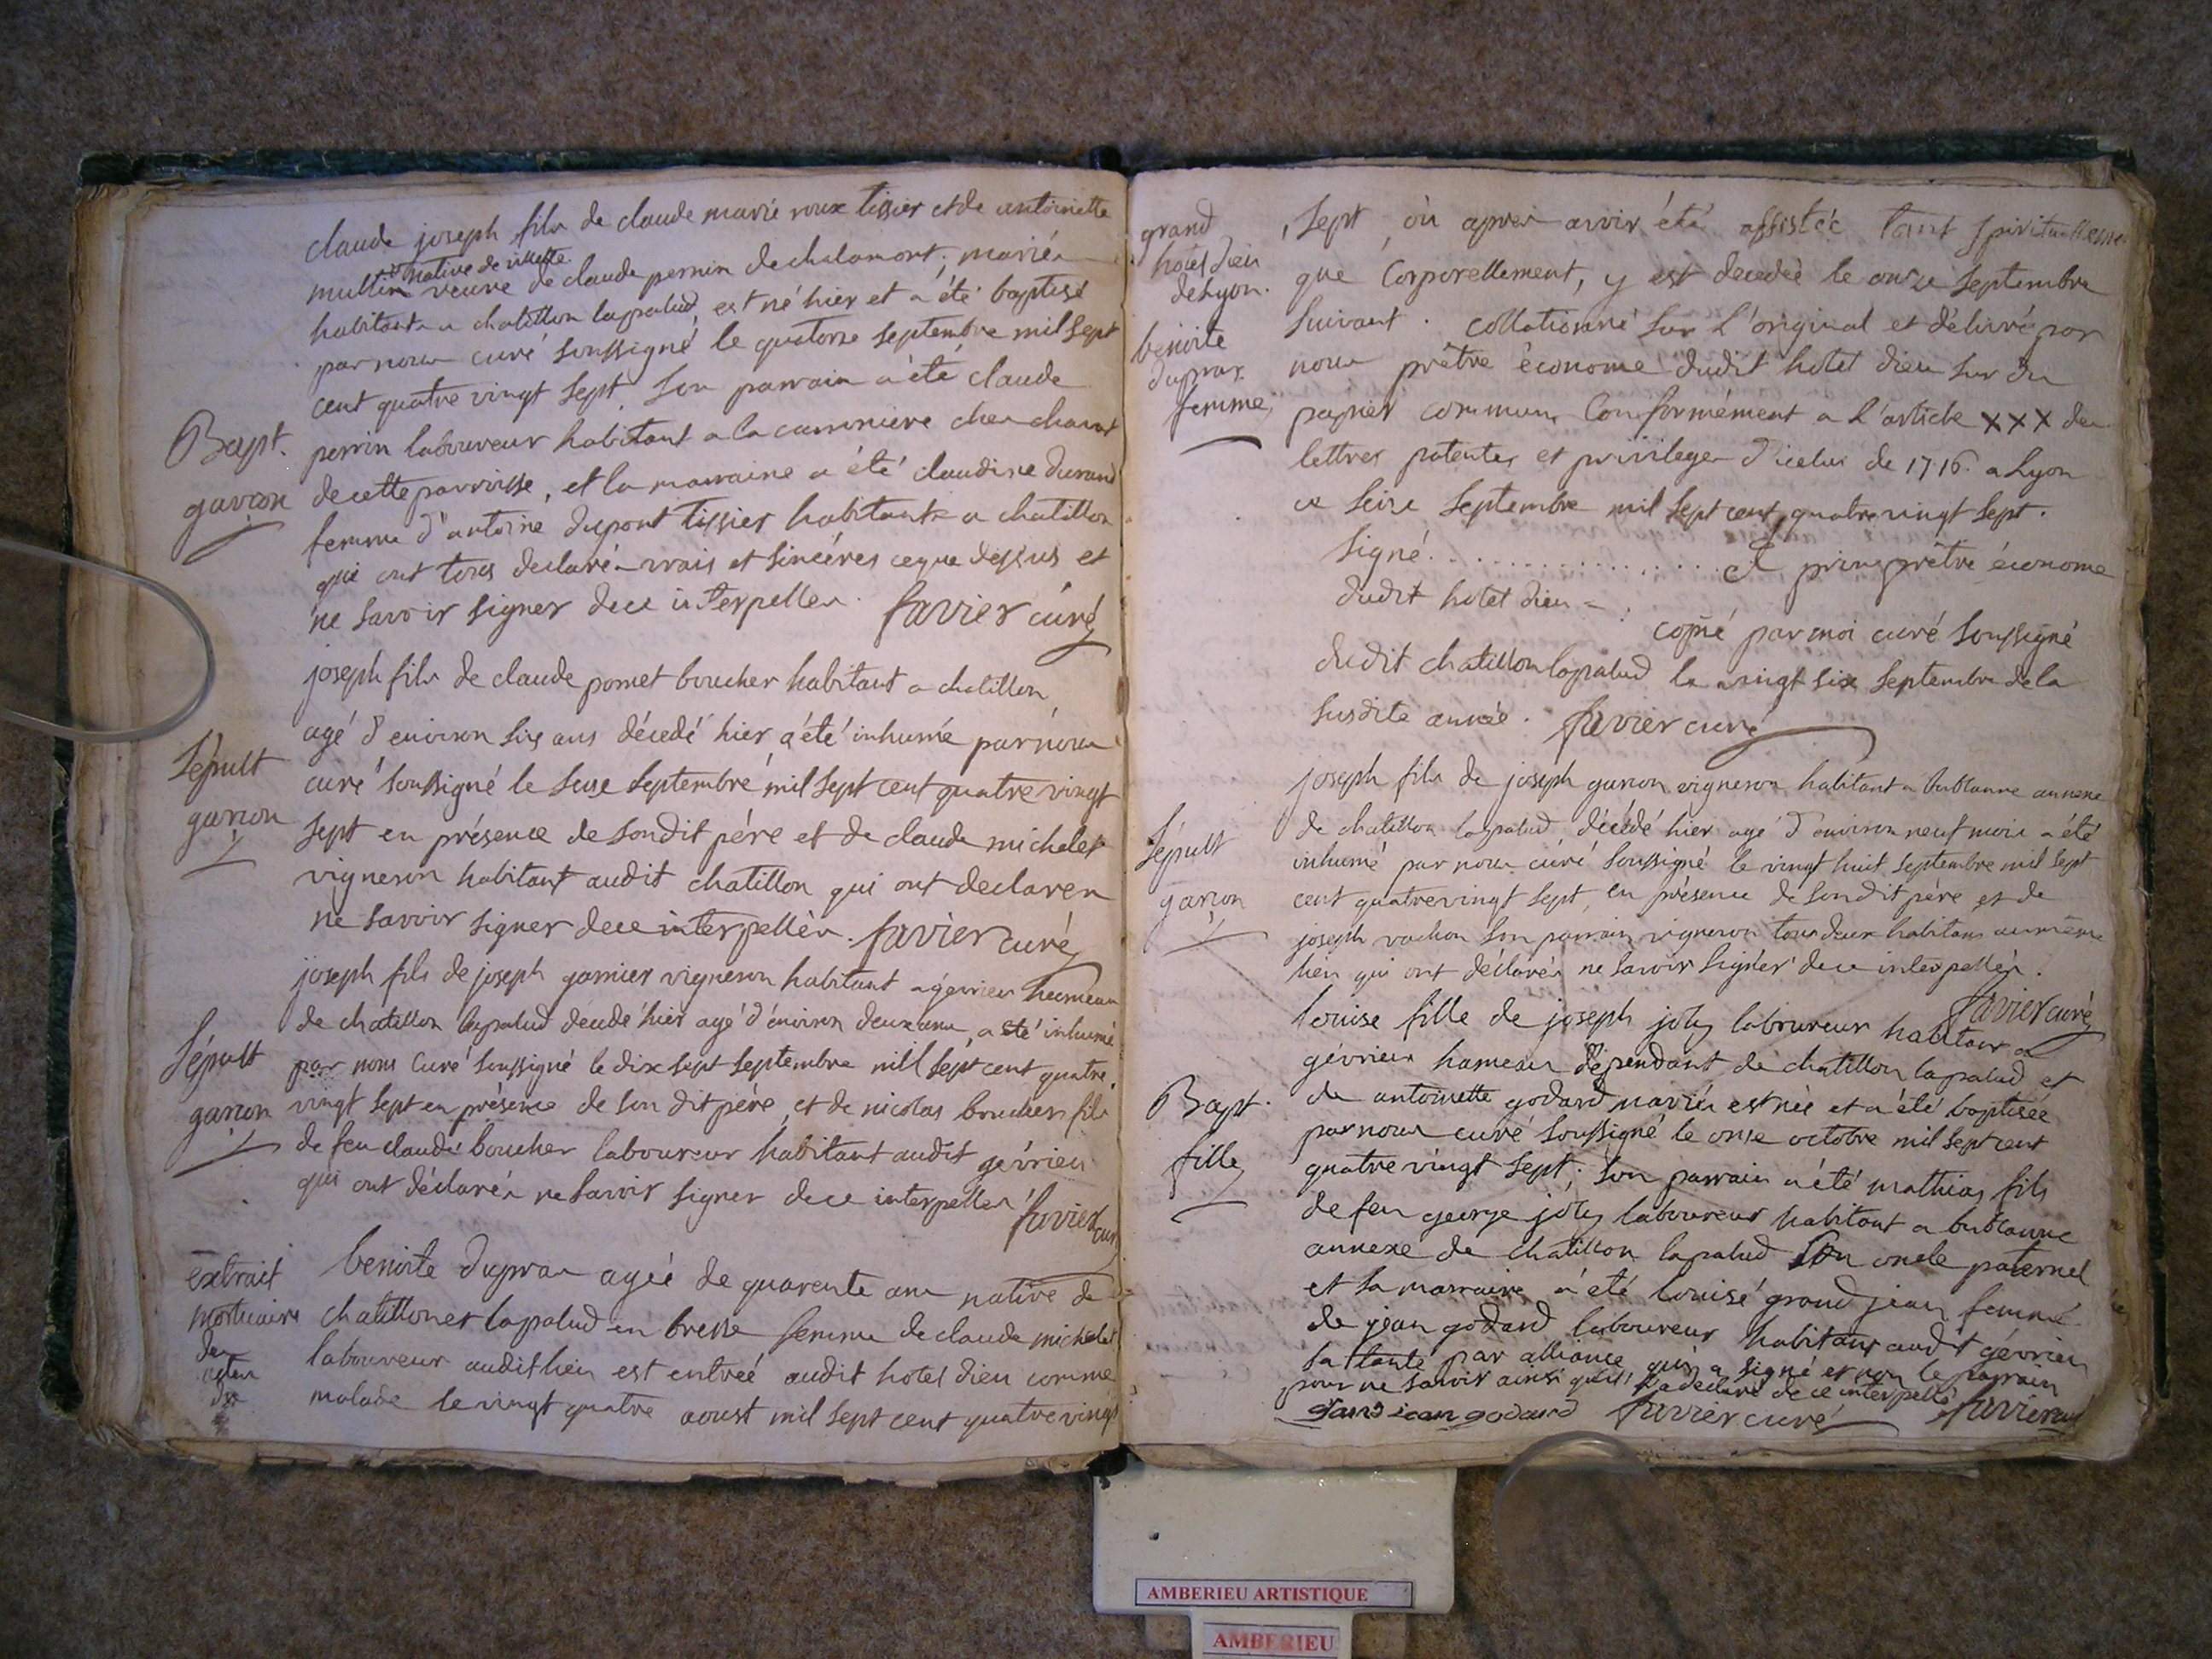 claude joseph fils de claude marie roux tissier et de antoinette
native de villette
multin veuve de claude perrin de chalamont, mariés
habitants a chatillon lapalud, est né hier et a été baptisé
par nous curé soussigné le quatorze septembre mil sept
cent quatre vingt sept. Son parrain a été claude
Bapt. garçon
perrin laboureur habitant a la
de cette parroisse, et la marraine a été claudine durand
femme d'antoine dupont tissier habitants a chatillon
qui ont tous declarés vrais et sincéres ce que dessus et
ne savoir signer de ce interpellés. favier curé
joseph fils de claude pomet boucher habitant a chatillon
agé d'environ six ans décedé hier a été inhumé par nous
Sépult garcon
curé soussigné le seise septembre mil sept cent quatre vingt
sept en présence de son dit pére et de claude michelet
vigneron habitant audit chatillon qui ont declarés
ne savoir signer de ce interpellés. favier curé
joseph fils de joseph garnier vigneron habitant a gévrieu hameau
de chatillon lapalud décedé hier agé d'environ deux ans, a été inhumé
Sépult garcon
par nous Curé soussigné le dix sept septembre mill sept cent quatre
vingt sept en présence de son dit pére, et de nicolas boucher fils
de feu claude boucher laboureur habitant audit gévrieu
qui ont déclarés ne savoir signer de ce interpellés
favier curé
extrait mortuaire
benoite dupras agée de quarente ans native de
chatillon et lapalud en bresse femme de claude michelet
laboureur audit lieu est entreé audit hotel dieu comme
malade le vingt quatre aoust mil sept cent quatre vingt
grand hotel dieu de Lyon.
benoite dupras femme
sept, où aprés avoir été assistée tant spirituellement
que Corporellement, y est decedée le onze septembre
suivant. collationné sur l'original et délivré par
nous prêtre économe dudit hotel dieu sur du
papier commun Conformément a l'article XXX des
lettres patentes et privileges d'icelui de 1716. a Lyon
ce seise septembre mil sept cent quatre vingt sept.
signé. . . . . . . . . . . . prêtre économe
dudit hotel dieu
copié par moi curé soussigné
dudit chatillon lapalud le vingt six septembre de la
susdite année. favier curé
joseph fils de joseph garcon vigneron habitant a bublanne annexe
de chatillon lapalud décédé hier agé d'environ neuf mois a été
Sépult garcon
inhumé par nous curé soussigné le vingt huit septembre mil sept
cent quatre vingt sept, en présence de son dit pére et de
joseph vachon son parrain vigneron tous deux habitans au même
lieu qui ont déclarés ne savoir signer de ce interpellés.
favier curé
louise fille de joseph joly laboureur habitant a
gévrieu hameau dépendant de chatillon lapalud et
Bapt. fille
de antoinette godard mariés est née et a été baptisée
par nous curé soussigné le onse octobre mil sept cent
quatre vingt sept; son parrain a été mathias fils
de feu george joly laboureur habitant a bublanne
annexe de chatillon lapalud son oncle paternel
et sa marraine a été louise grand jean femme
de jean godard laboureur habitans audit gévrieu
sa tante par alliance qui a signé et non le parrain
pour ne savoir ainsi qu'il l'a declaré de ce interpellé
grand jean godard favier curé favier curé
AMBERIEU ARTISTIQUE
AMBERIEU